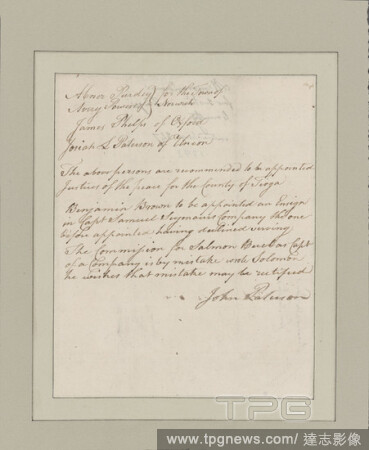 Abner Purdy } for the Town of
Avery Powers } Norwich
James Phelps of Oxford
Josiah L Paterson of Union
The above persons are recommended to be appointed
Justices of the peace for the County of Tioga
Benjamin Brown to be appointed an Ensign
in Capt Samuel Seymours Company the one
before appointed having declined serving
The Commission for Salmon Capt
of a Company is by mistake made Solomon
he wishes that mistake may be rectified
John Paterson
TPG
www.tpgnews.com / 達志影像